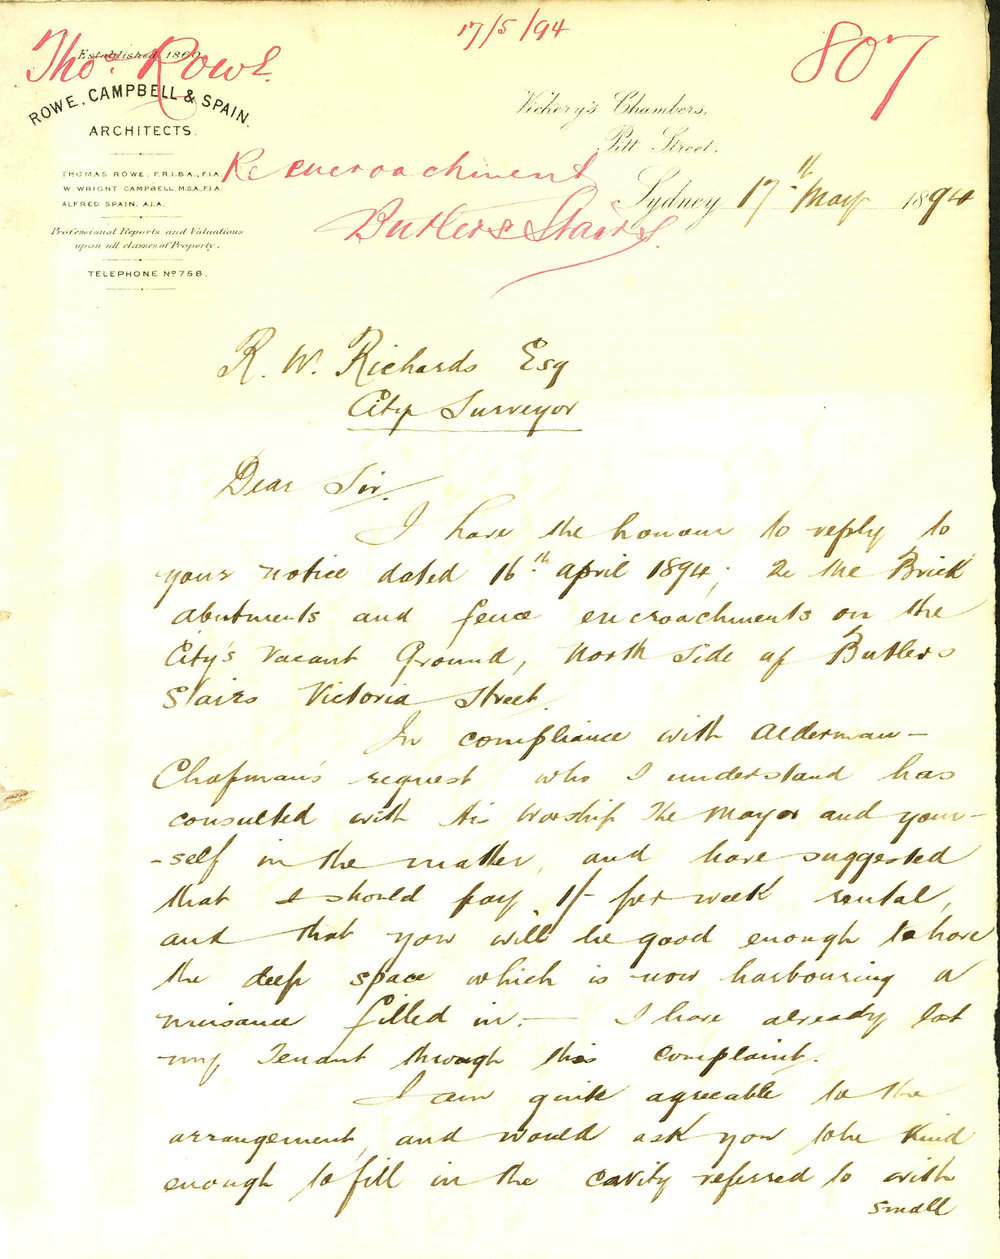 17/5/94
807
Thos. Rowe.
Established 1860
ROWE, CAMPBELL & SPAIN.
ARCHITECTS.
Vickery's Chambers,
Pitt Street,
THOMAS ROWE, F.R.I.B.A., F.I.A.
W. WRIGHT CAMPBELL, M.S.A., F.I.A.
ALFRED SPAIN, A.I.A.
Re encroachment
Butlers Stairs.
Sydney 17th May 1894
Professional Reports and Valuations
upon all classes of Property.
TELEPHONE No 758.
R. W. Richards Esq
City Surveyor
Dear Sir.
I have the honour to reply to
your notice dated 16th april 1894; Re the Brick
abutments and fence encroachments on the
City's vacant Ground, North Side of Butlers
Stairs Victoria Street.
In compliance with Alderman -
Chapman's request who I understand has
consulted with His Worship The Mayor and your-
-self in the matter, and have suggested
that I should pay 1/- per week rental,
and that you will be good enough to have
the deep space which is now harbouring a
nuisance filled in. - I have already lost
my Tenant through this complaint.
I am quite agreeable to the
arrangement, and would ask you to be kind
enough to fill in the cavity referred to with
small